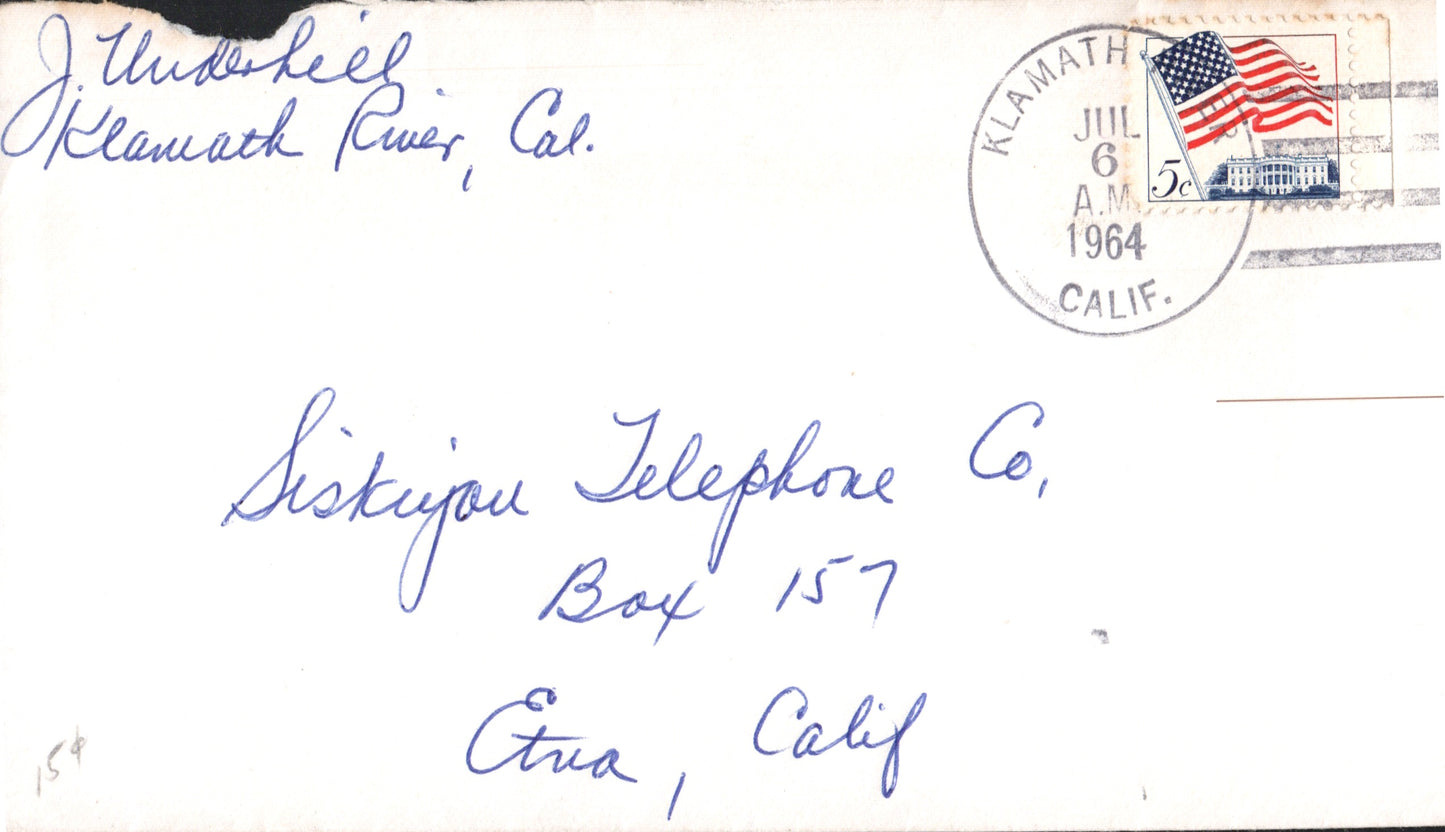 J. Underhill
Klamath River, Cal.
KLAMATH RIVER
JUL
6
A.M.
1964
CALIF.
5c
Siskiyou Telephone Co,
Box 157
Etna, Calif
15¢